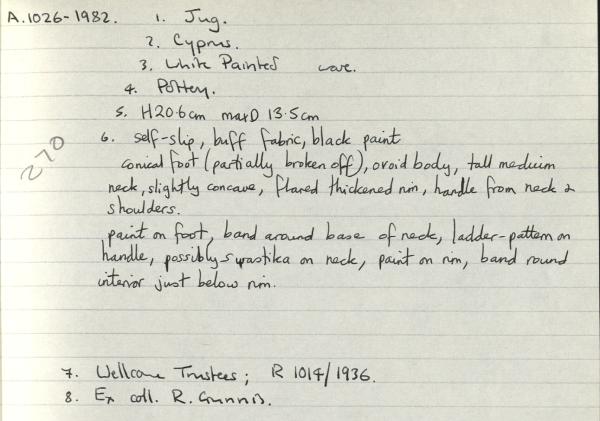 A.1026-1982. 1. Jug.
2. Cyprus.
3. White Painted ware.
4. Pottery.
5. H20.6cm maxD 13.5cm
270
6. self-slip, buff fabric, black paint
conical foot (partially broken off), ovoid body, tall medium
neck, slightly concave, flared thickened rim, handle from neck to
shoulders.
paint on foot, band around base of neck, ladder-pattern on
handle, possibly swastika on neck, paint on rim, band round
interior just below rim.
7. Wellcome Trustees; R 1014/1936.
8. Ex coll. R. Gunnis.